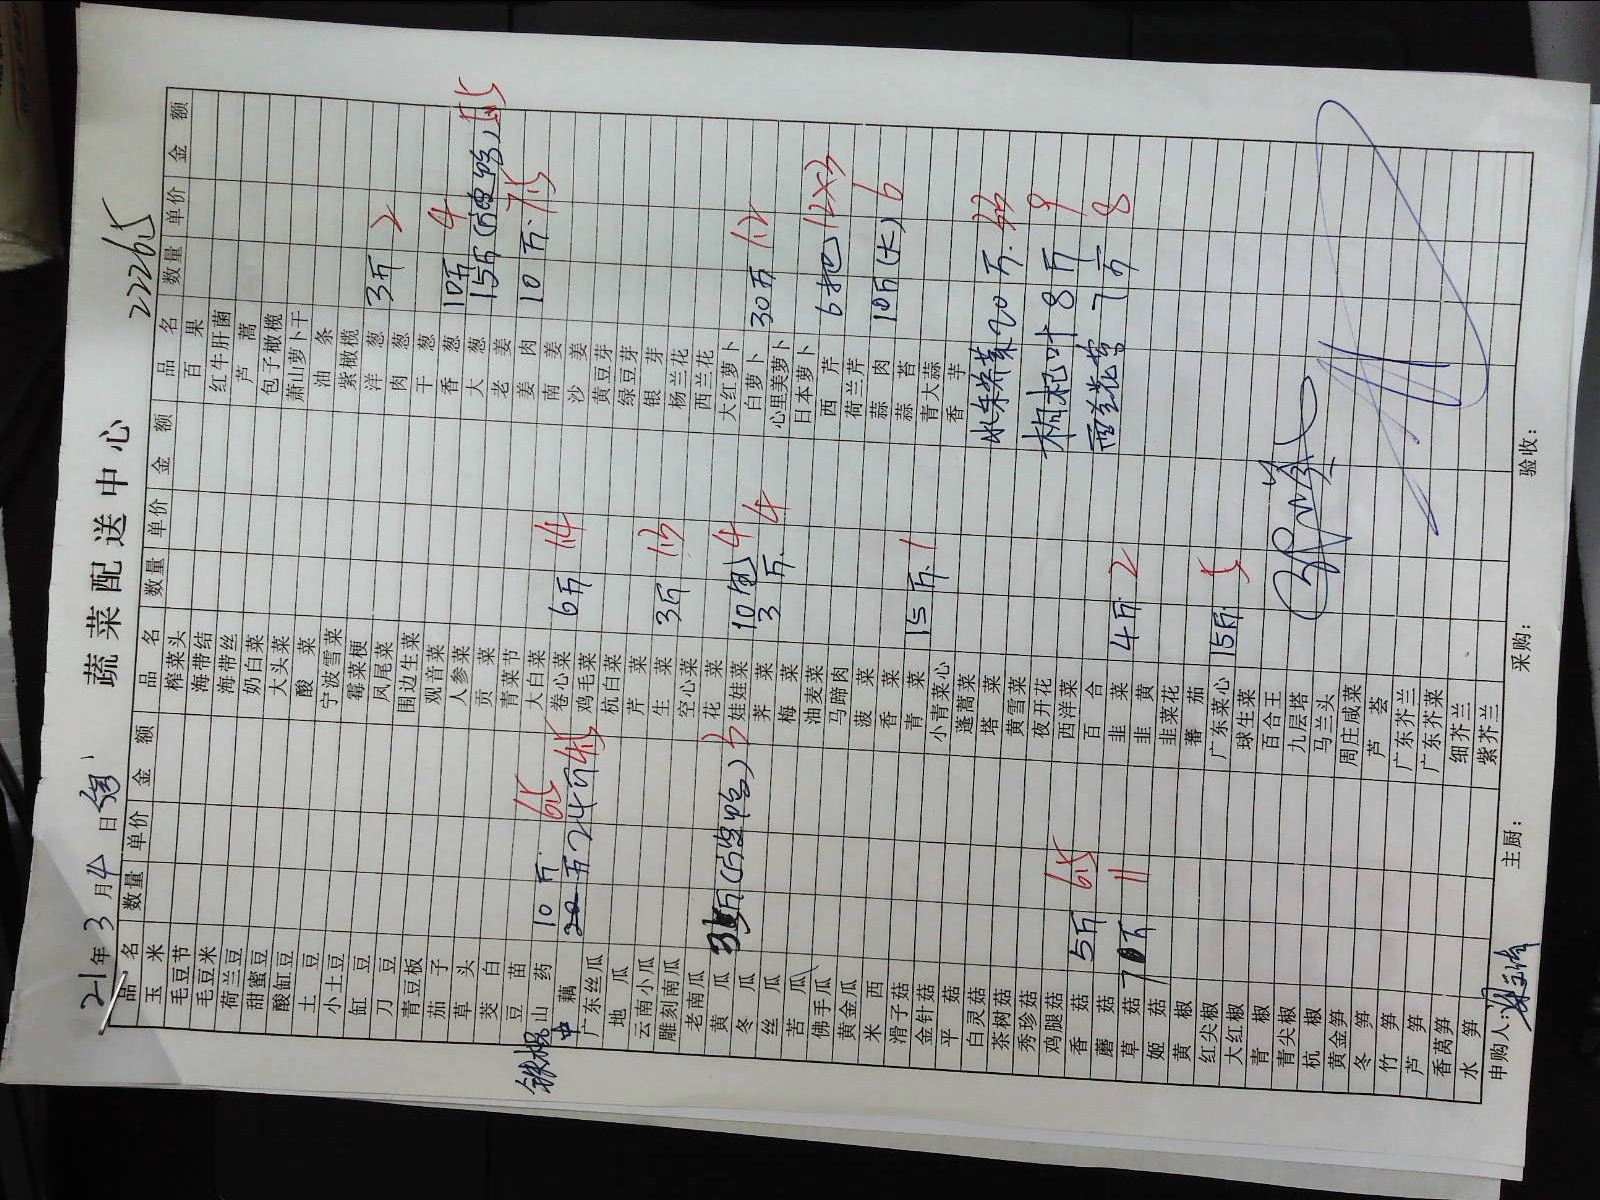 蔬菜配送中心
22265
21年3月4日
品名 数量 单价 金额
玉米
毛豆节
毛豆米
荷兰豆
甜蜜豆
酸缸豆
土豆
小土豆
缸豆
刀豆
青豆板
茄子
草头
茭白
豆苗
铁棍山药 10斤 6.5
中藕 24斤 4.5
广东丝瓜
地瓜
云南小瓜
雕刻南瓜
老南瓜
黄瓜 3
冬瓜
丝瓜
苦瓜
佛手瓜
黄金瓜
米西
滑子菇
金针菇
平菇
白灵菇
茶树菇
秀珍菇
鸡腿菇
香菇 5斤 6.5
蘑菇
草菇 11
姬菇
黄椒
红尖椒
大红椒
青椒
青尖椒
杭椒
黄金笋
冬笋
竹笋
芦笋
香莴笋
水笋
品名 数量 单价 金额
榨菜头
海带结
海带丝
奶白菜
大头菜
酸菜
宁波雪菜
霉菜梗
凤尾菜
围边生菜
观音菜
人参菜
贡菜
青菜节
大白菜
卷心菜 6斤 1.4
鸡毛菜
杭白菜
芹菜
生菜 3斤 1.3
空心菜
花菜
娃娃菜 10包 4
荠菜 3斤 4
梅菜
油麦菜
马蹄肉
菠菜
香菜
青菜 15斤 1
小青菜心
蓬蒿菜
塔菜
黄雪菜
夜开花
西洋菜
百合
韭菜 4斤 2
韭黄
韭菜花
蕃茄
广东菜心 15斤 5
球生菜
百合王
九层塔
马兰头
周庄咸菜
芦荟
广东芥兰
广东芥菜
细芥兰
紫芥兰
品名 数量 单价 金额
百果
红牛肝菌
芦蒿
包子橄榄
萧山萝卜干
油条
紫橄榄
洋葱 3斤 2
肉葱
干葱
香葱 10斤 4
大葱 15斤
老姜
姜肉 10斤 7.5
南姜
沙姜
黄豆芽
绿豆芽
银芽
杨兰花
西兰花
大红萝卜
白萝卜 30斤 1.2
心里美萝卜
日本萝卜
西芹 6把 12×3
荷兰芹
蒜肉 10斤(大) 6
蒜苔
青大蒜
香芋
水果荠菜 20斤
枸杞叶 8斤 9
西兰花苔 7斤 8
申购人:
主厨:
采购:
验收: